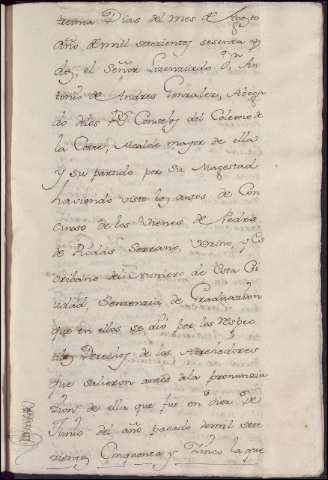 treinta Dias del mes de Agosto
año de mil setecientos sesenta y
dos, el Señor Lizenziado Dn. An-
tonio de Andres Gonzalez, Aboga-
do delos Rs. Consejos del Colexio de
la Corte, Alcalde mayor de ella
y su partido por Su Magestad
haviendo visto los autos de Con-
curso de los Vienes de Pedro
de Rodas Serrano, Vezino, y Es-
cribano del Numero de esta Ci-
udad, Sentenzia de Graduazion
que en ellos se dió por los respec-
tibos Derechos de los Acrehedores
que salieron antes dela pronunzia-
zion de ella que fue en diez de
Junio del año pasado demil sete-
zientos Cinquenta y Zinco la que